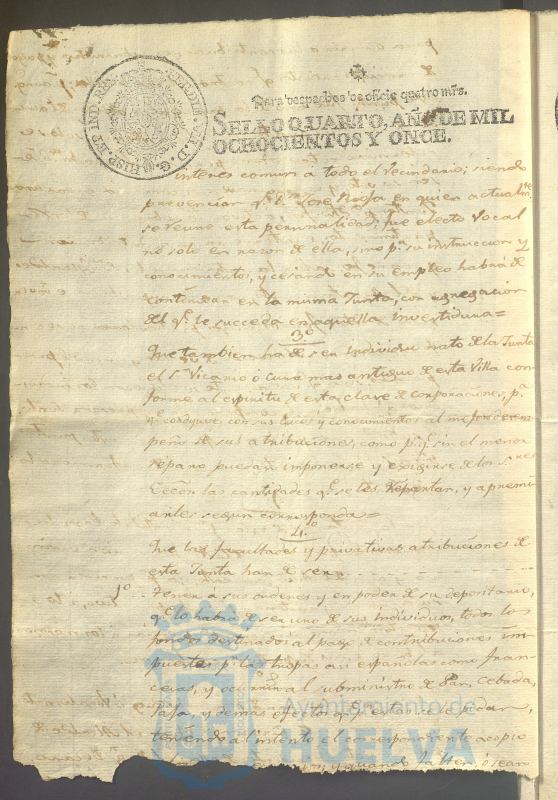 HISP. ET IND. REX. FERDIN. VII. D. G.
Para despachos de oficio quatro mrs.
SELLO QUARTO, AÑO DE MIL
OCHOCIENTOS Y ONCE.
interes comun a todo el vecindario; siendo
prevencion qe. Dn. Jose en quien actualmte
se reune esta personalidad, fue electo vocal
no solo en razon de ella, sino pr. su instruccion y
conocimiento, y cesando en su empleo habrá de
continuar en la misma Junta, con agregacion
del qe. le succeda en aquella investidura=
3º
Que tambien ha de ser individuo nato de la Junta
el Sr. Vicario ó cura mas antiguo de esta Villa con
forme al espiritu de esta clase de corporaciones, pa.
qe. coadyuve con sus luces y conocimientos al mejor desem
peño de sus atribuciones, como pr. qe. sin el menor
reparo puedan imponerse y exigirse de los Sres
las cantidades qe. se les repartan, y apremi
arles segun corresponda=
4º
Que las facultades y privativas atribuciones de
esta Junta han de ser
1º Tener a sus ordenes y en poder de su depositario,
qe. lo habrá de ser uno de sus individuos, todos los
fondos destinados al pago de contribuciones im
puestas pr. las tropas asi españolas como fran
cesas, y ocurrir al subministro de Pan, Cebada,
Paja, y demas efectos qe. de estas se pidan,
teniendo al intento el correspondiente acopio
y quando falten, ó sean
Ayuntamiento de
HUELVA